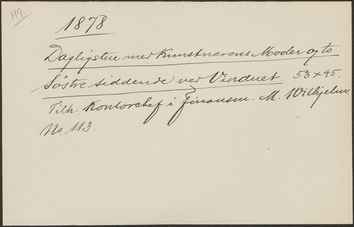 119.
1878
Dagligstue med Kunstnerens Moder og to
Søstre siddende ved Vinduet 53 x 45.
Tilh. Kontorchef i Finansm. M. Wilhjelm
No. 113.